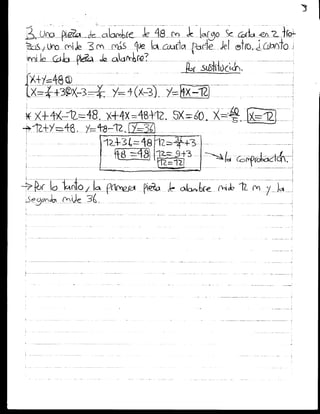 3
3. Una pieza de alambre de 48 m de largo se corta en 2 tro-
zos, uno mide 3 m más que la cuarta parte del otro. ¿Cuánto
mide cada pieza de alambre?
Por sustitución.
{x+y=48 ①
x=y/4+3 ② x-3=y/4. y=4(x-3). y=4x-12
* x+4x-12=48. x+4x=48+12. 5x=60. x=60/5. x=12
→ 12+y=48. y=48-12. y=36
12+36=48 12=36/4+3
48=48 12=9+3 → la comprobación.
12=12
→ Por lo tanto, la primera pieza de alambre mide 12 m y la
segunda mide 36.